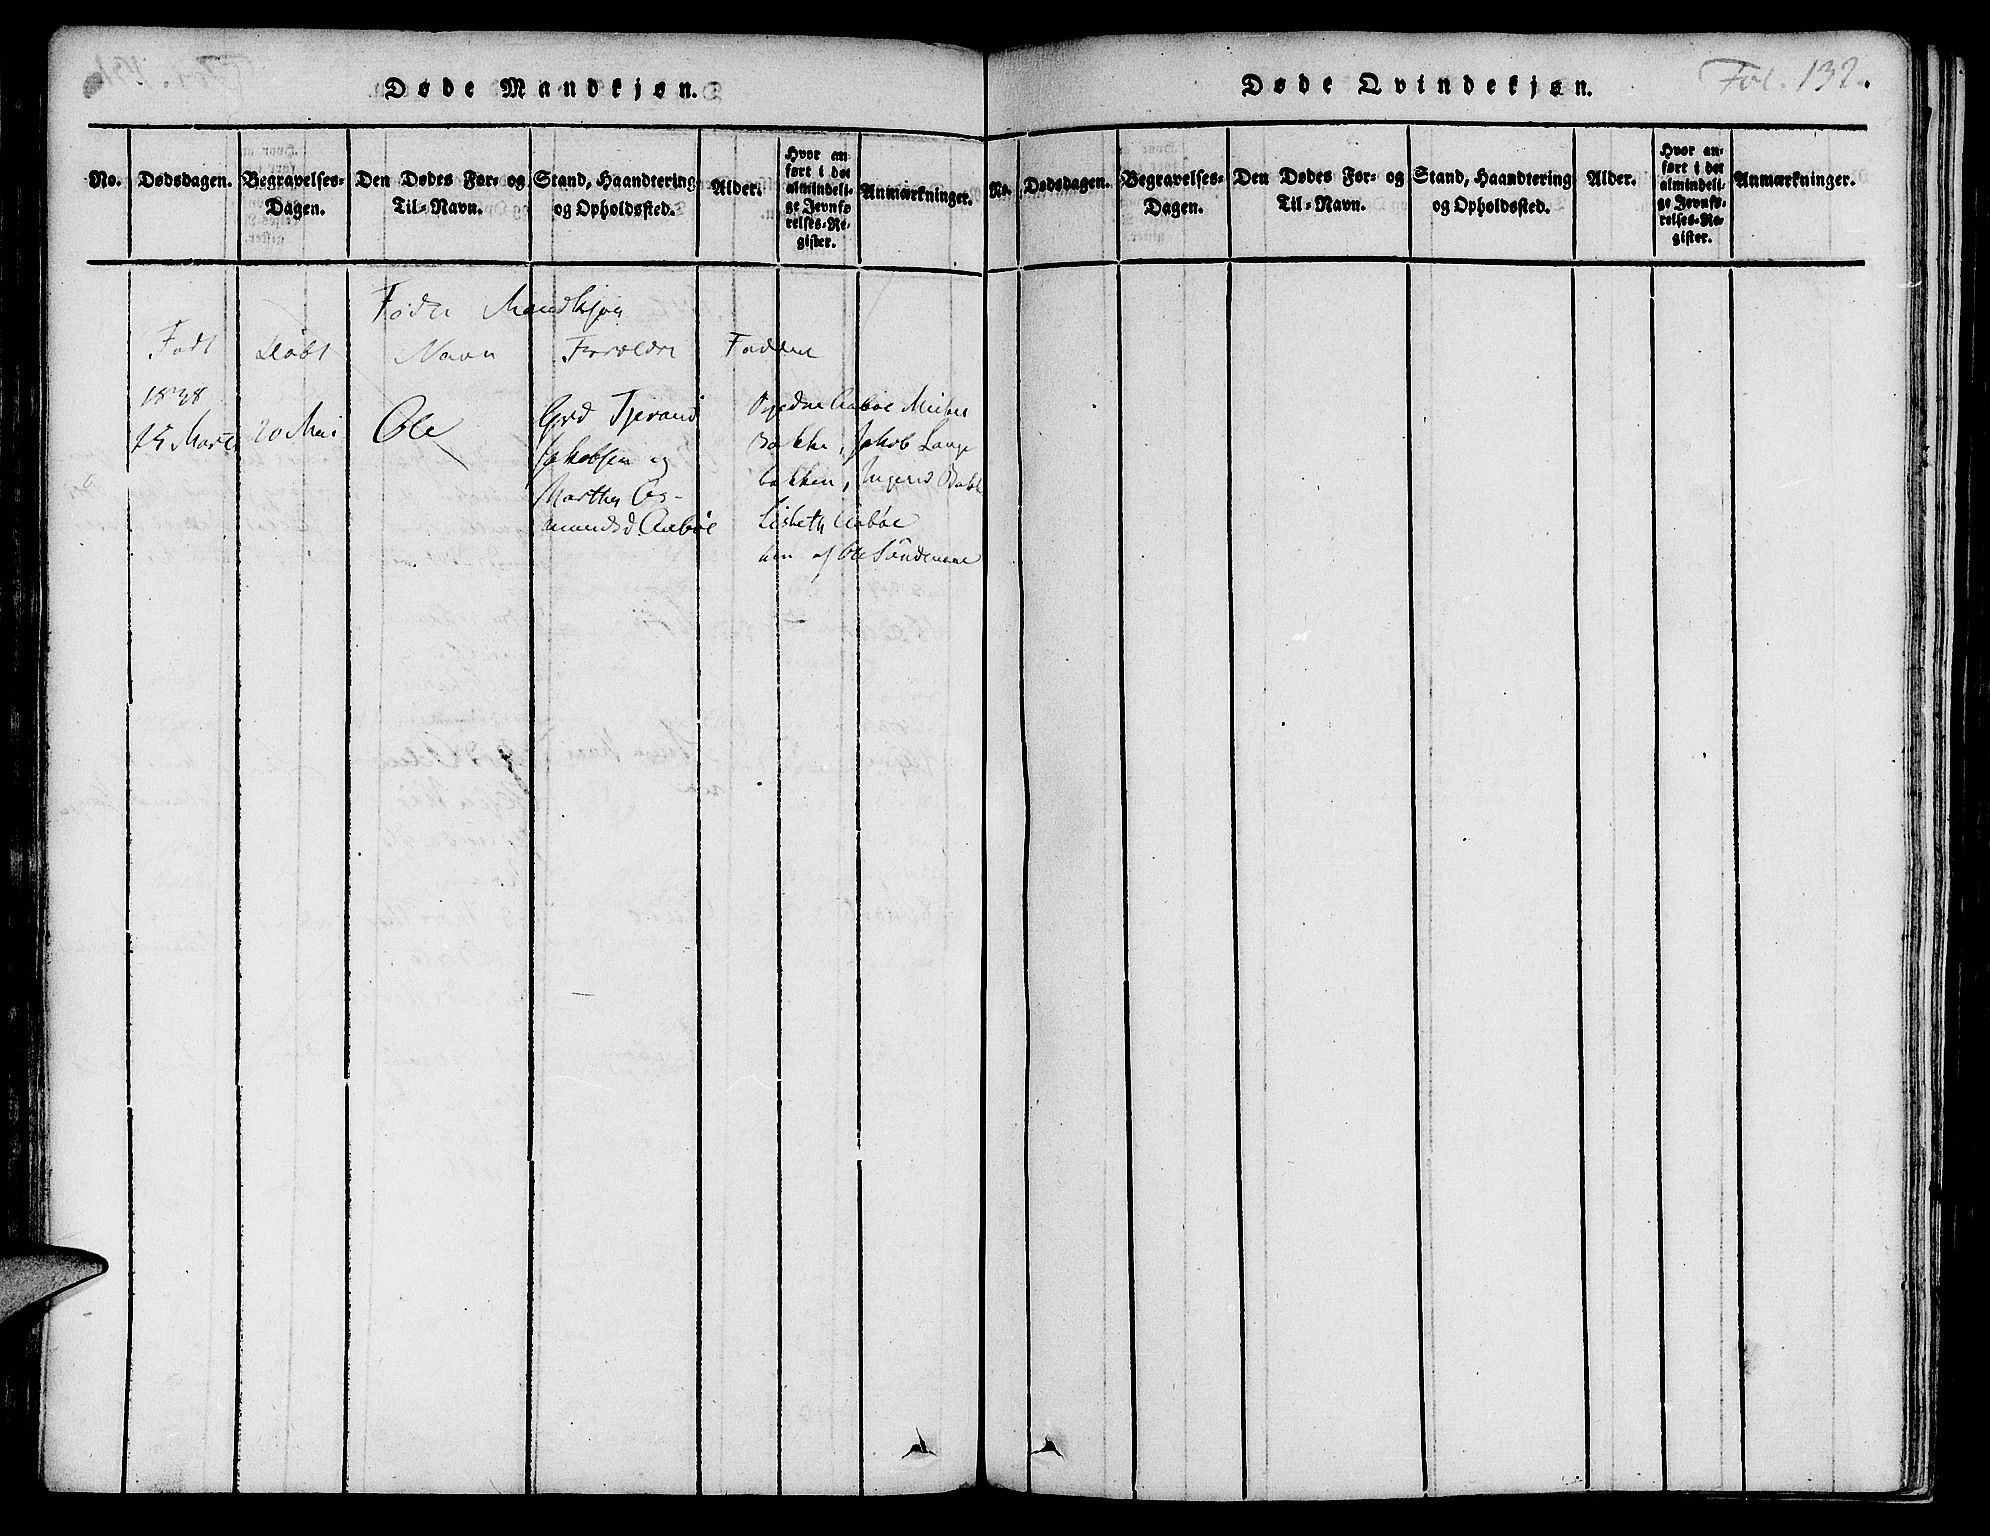 Døde Mandkjøn.
No.
Dødsdagen.
Begravelses-
Dagen.
Den Dødes For- og
Til-Navn.
Stand, Haandtering
og Opholdssted.
Alder.
Hvor an-
ført i det
almindeli-
ge Jevnfø-
relses-Re-
gister.
Anmærkninger.
Føder Mandkjøn
Født
Døbt
Navn
Forældre
Faddere
1838
15 Marts
20 Mai
Ole
Grd Tjerand
Jakobsen og
Marthe Os-
mundsd. Aabøe
Aabøe
Bakke, Jakob Lange
bakken, Ingerid Bakk
Lisbeth Aabøe
af Ole
Døde Qvindekjøn.
Fol. 132.
No.
Dødsdagen.
Begravelses-
Dagen.
Den Dødes For- og
Til-Navn.
Stand, Haandtering
og Opholdssted.
Alder.
Hvor an-
ført i det
almindeli-
ge Jevnfø-
relses-Re-
gister.
Anmærkninger.